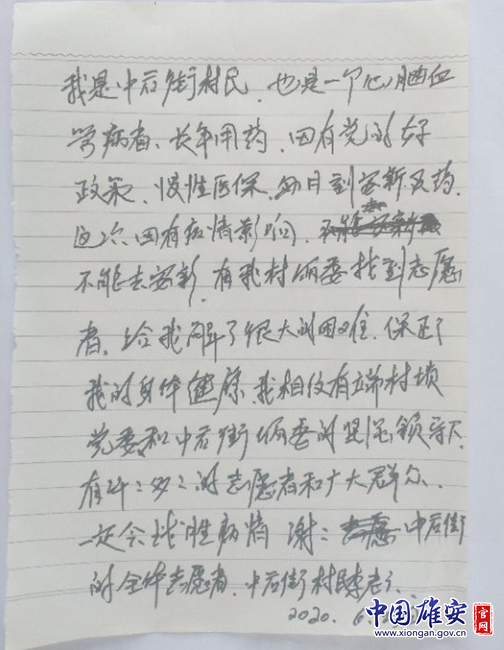 我是中后街村民,也是一个心脑血
管病者、长年用药,因有党的好
政策,慢性医保,每月到安新取药.
这次因有疫情影响,
不能去安新,有我村两委找到志愿
者,给我解了很大的困难.保证了
我的身体健康.我相信有端村镇
党委和中后街两委的坚强领导下
有许许多多的志愿者和广大群众、
一定会战胜病情 谢谢 中后街
的全体志愿者.中后街村民李
2020. 6.
中国雄安 官网
www.xiongan.gov.cn